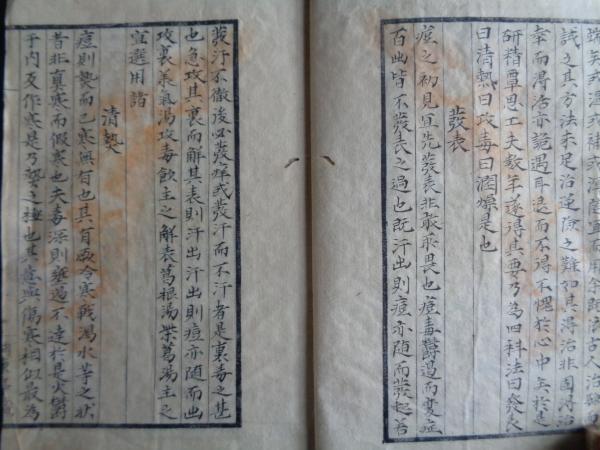 誠之其方法未足治逆險之難如其得治非固得治
幸而得治亦詭遇耳退而不得不愧於心中矣於是
研精覃思工夫數年遂得其要乃為四科法曰發表
曰清熱曰攻毒曰潤燥是也
發表
痘之初見宜先發表非敢疎畏也痘毒鬱遏而變症
百出皆不發表之過也既汗出則痘亦随而發起若
發汗不徹後必發痒或發汗而不汗者是裏毒之甚
也急攻其裏而解其表則汗出汗出則痘亦随而出
攻裏承氣湯攻毒飲主之解表葛根湯柴葛湯主之
宜選用諸
清熱
痘則熱而已寒無有也其有厥冷寒戰瀉水等之狀
者非真寒而假寒也夫毒深則壅遏不達於是火鬱
于内反作寒是乃熱之極也其意與傷寒相似最為